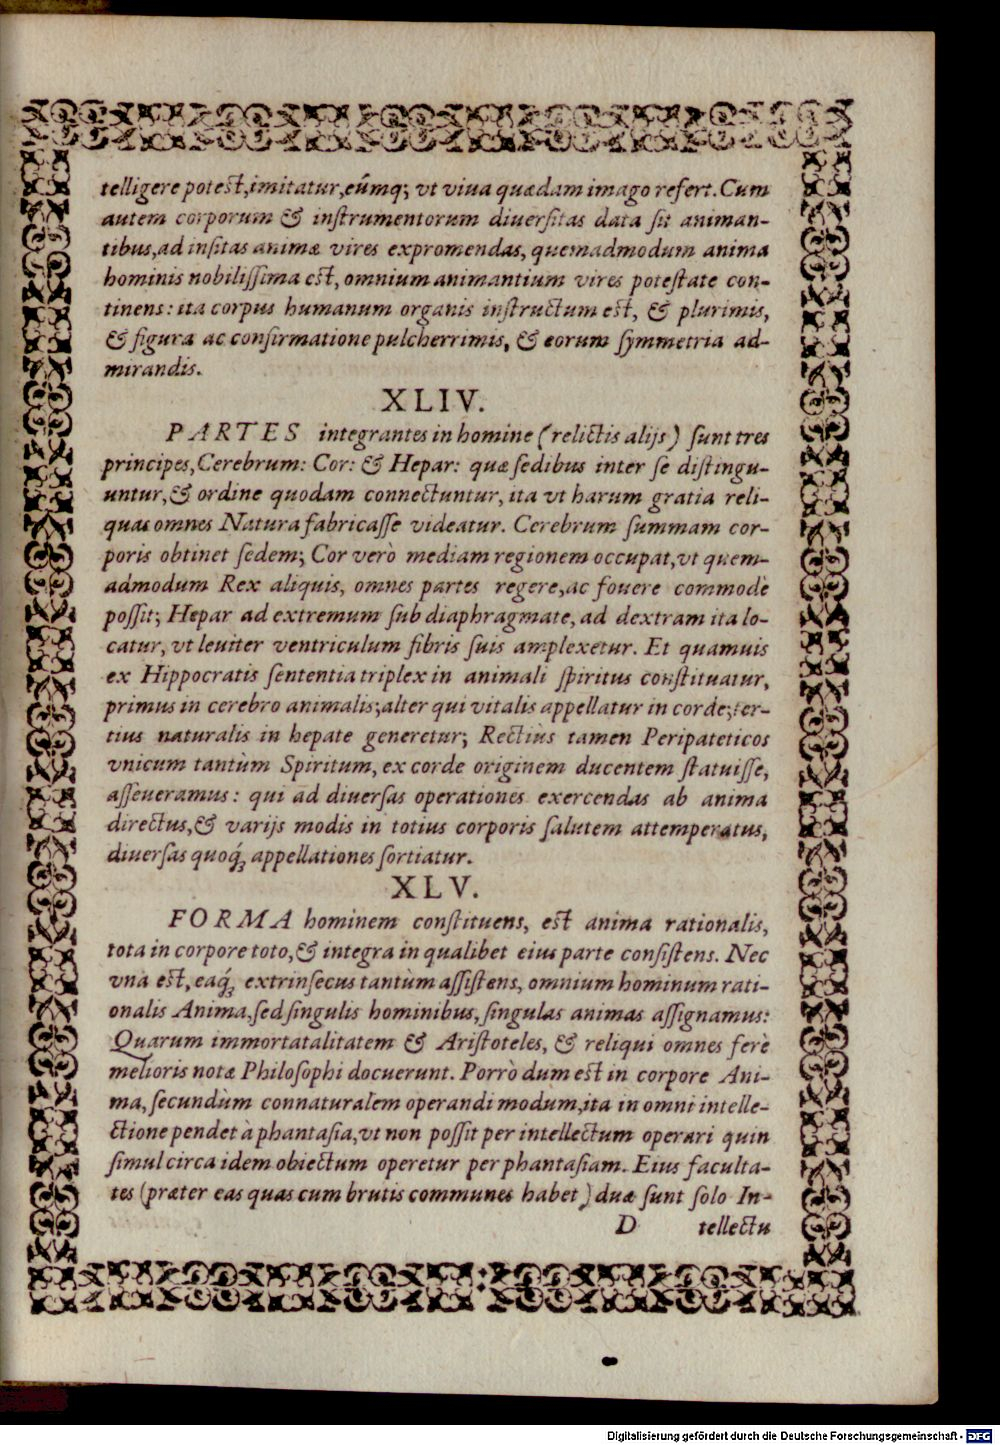 telligere potest, imitatur, eúmq; vt viua quædam imago refert. Cum
autem corporum & instrumentorum diuersitas data sit animan-
tibus, ad insitas animæ vires expromendas, quemadmodum anima
hominis nobilissima est, omnium animantium vires potestate con-
tinens: ita corpus humanum organis instructum est, & plurimis,
& figura ac confirmatione pulcherrimis, & eorum symmetria ad-
mirandis.
XLIV.
PARTES integrantes in homine (relictis alijs) sunt tres
principes, Cerebrum: Cor: & Hepar: quæ sedibus inter se distingu-
untur, & ordine quodam connectuntur, ita vt harum gratia reli-
quas omnes Natura fabricasse videatur. Cerebrum summam cor-
poris obtinet sedem; Cor verò mediam regionem occupat, vt quem-
admodum Rex aliquis, omnes partes regere, ac fouere commodè
possit; Hepar ad extremum sub diaphragmate, ad dextram ita lo-
catur, vt leuiter ventriculum fibris suis amplexetur. Et quamuis
ex Hippocratis sententia triplex in animali spiritus constituatur,
primus in cerebro animalis; alter qui vitalis appellatur in corde; ter-
tius naturalis in hepate generetur; Rectiùs tamen Peripateticos
vnicum tantùm Spiritum, ex corde originem ducentem statuisse,
asseueramus: qui ad diuersas operationes exercendas ab anima
directus, & varijs modis in totius corporis salutem attemperatus,
diuersas quoq́; appellationes sortiatur.
XLV.
FORMA hominem constituens, est anima rationalis,
tota in corpore toto, & integra in qualibet eius parte consistens. Nec
vna est, eaq́; extrinsecus tantùm assistens, omnium hominum rati-
onalis Anima, sed singulis hominibus, singulas animas assignamus:
Quarum immortatalitatem & Aristoteles, & reliqui omnes ferè
melioris notæ Philosophi docuerunt. Porrò dum est in corpore Ani-
ma, secundum connaturalem operandi modum, ita in omni intelle-
ctione pendet à phantasia, vt non possit per intellectum operari quin
simul circa idem obiectum operetur per phantasiam. Eius faculta-
tes (præter eas quas cum brutis communes habet) duæ sunt solo In-
D tellectu
Digitalisierung gefördert durch die Deutsche Forschungsgemeinschaft - DFG